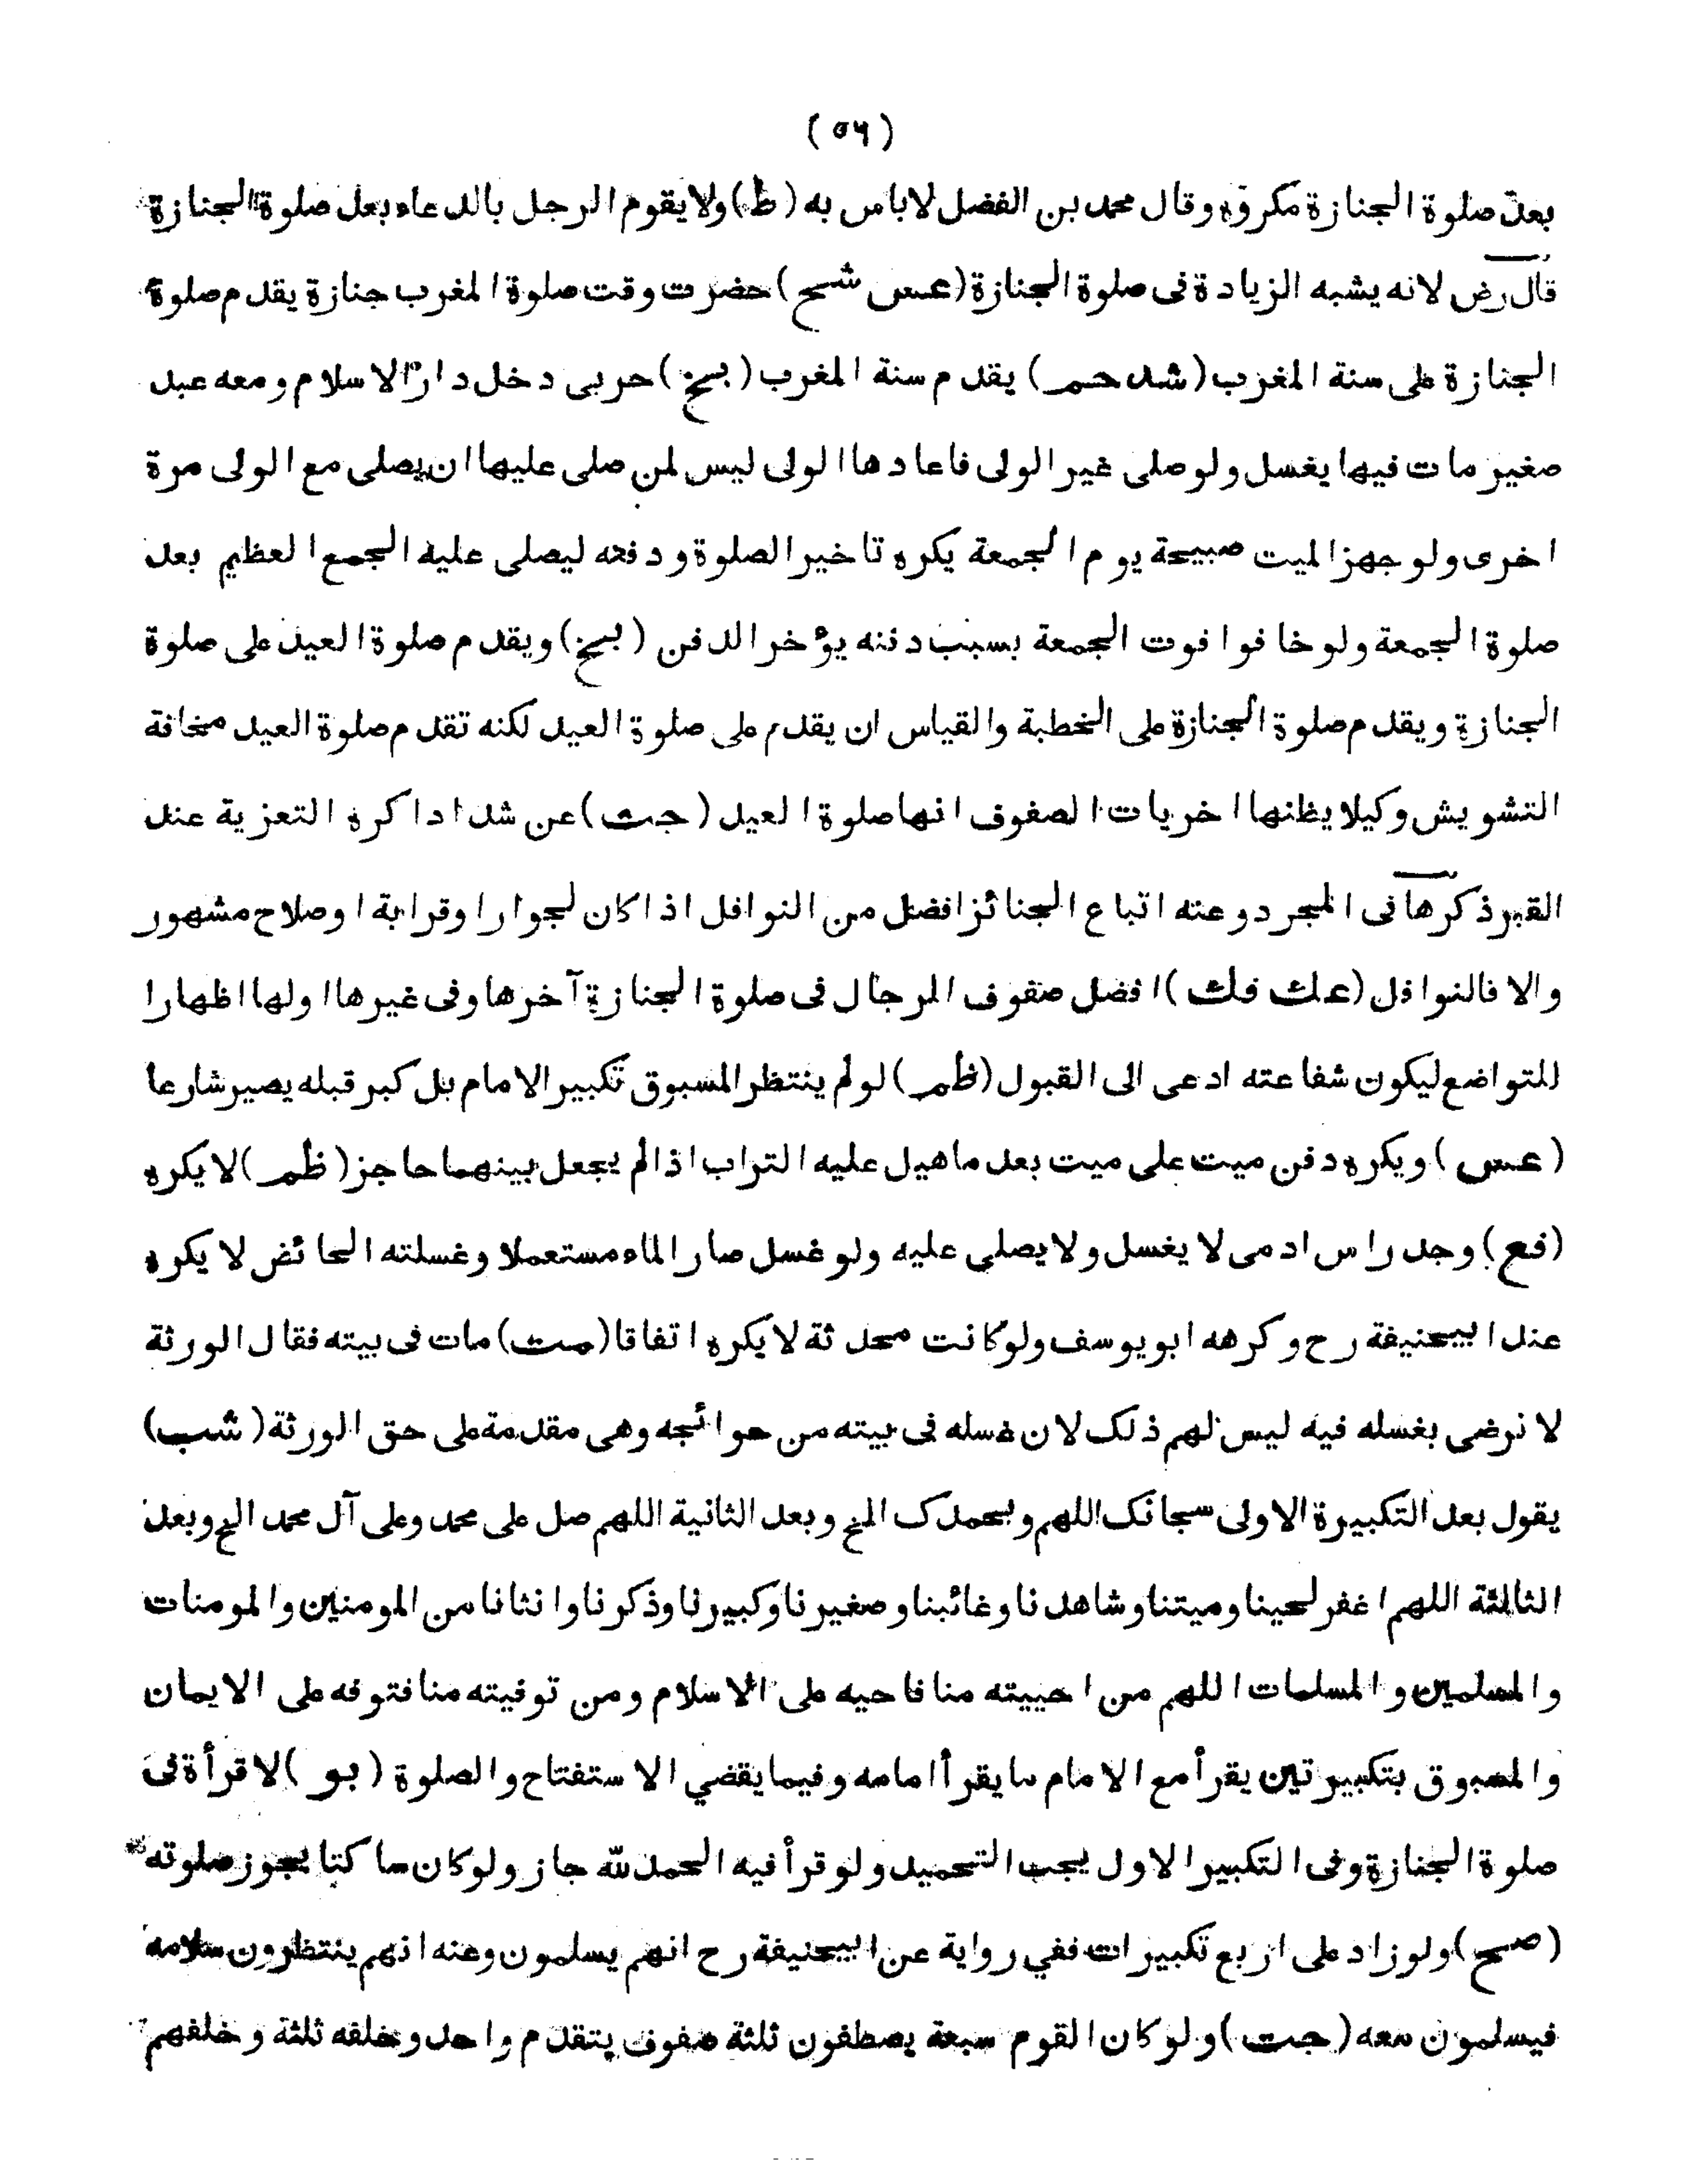 (٥٦)
بعد صلوة الجنازة مكروه وقال محمد بن الفضل لاباس به (ظ) ولا يقوم الرجل بالدعاء بعد صلوة الجنازة
قال رض لانه يشبه الزيادة فى صلوة الجنازة (عس شح) حضرت وقت صلوة المغرب جنازة يقدم صلوة
الجنازة على سنة المغرب (شد حم) يقدم سنة المغرب (بخ) حربى دخل دار الاسلام ومعه عبد
صغير مات فيها يغسل ولو صلى غير الولى فاعادها الولى ليس لمن صلى عليها ان يصلى مع الولى مرة
اخرى ولو جهز الميت صبيحة يوم الجمعة يكره تاخير الصلوة ودفنه ليصلى عليه الجمع العظيم بعد
صلوة الجمعة ولو خافوا فوت الجمعة بسبب دفنه يؤخر الدفن (بخ) ويقدم صلوة العيد على صلوة
الجنازة ويقدم صلوة الجنازة على الخطبة والقياس ان يقدم على صلوة العيد لكنه تقدم صلوة العيد مخافة
التشويش وكيلا يظنها اخريات الصفوف انها صلوة العيد (جت) عن شداد اكره التعزية عند
القبر ذكرها فى المجرد وعنه اتباع الجنائز افضل من النوافل اذا كان لجوار اوقرابة اوصلاح مشهور
والا فالنوافل (عك فك) افضل صفوف الرجال فى صلوة الجنازة آخرها وفى غيرها اولها اظهارا
للتواضع ليكون شفاعته ادعى الى القبول (ظم) لو لم ينتظر المسبوق تكبير الامام بل كبر قبله يصير شارعا
(عس) ويكره دفن ميت على ميت بعد ما هيل عليه التراب اذا لم يجعل بينهما حاجز (ظم) لا يكره
(فع) وجد راس ادمى لا يغسل ولا يصلى عليه ولو غسل صار الماء مستعملا وغسلته الحائض لا يكره
عند ابيحنيفة رح وكرهه ابو يوسف ولو كانت محدثة لا يكره اتفاقا (مت) مات فى بيته فقال الورثة
لا نرضى بغسله فيه ليس لهم ذلك لان غسله فى بيته من حوائجه وهى مقدمة على حق الورثة (شب)
يقول بعد التكبيرة الاولى سبحانك اللهم وبحمدك الخ وبعد الثانية اللهم صل على محمد وعلى آل محمد الخ وبعد
الثالثة اللهم اغفر لحينا وميتنا وشاهدنا وغائبنا وصغيرنا وكبيرنا وذكرنا وانثانا من المومنين والمومنات
والمسلمين والمسلمات اللهم من احييته منا فاحيه على الاسلام ومن توفيته منا فتوفه على الايمان
والمسبوق بتكبيرتين يقرأ مع الامام ما يقرأ امامه وفيما يقضي الاستفتاح والصلوة (بو) لا قرأة فى
صلوة الجنازة وفى التكبير الاول يجب التحميد ولو قرأ فيه الحمد لله جاز ولو كان ساكتا يجوز صلوته
(صح) ولو زاد على اربع تكبيرات ففي رواية عن ابيحنيفة رح انهم يسلمون وعنه انهم ينتظرون سلامه
فيسلمون معه (جت) ولو كان القوم سبعة يصطفون ثلثة صفوف يتقدم واحد وخلفه ثلثة وخلفهم